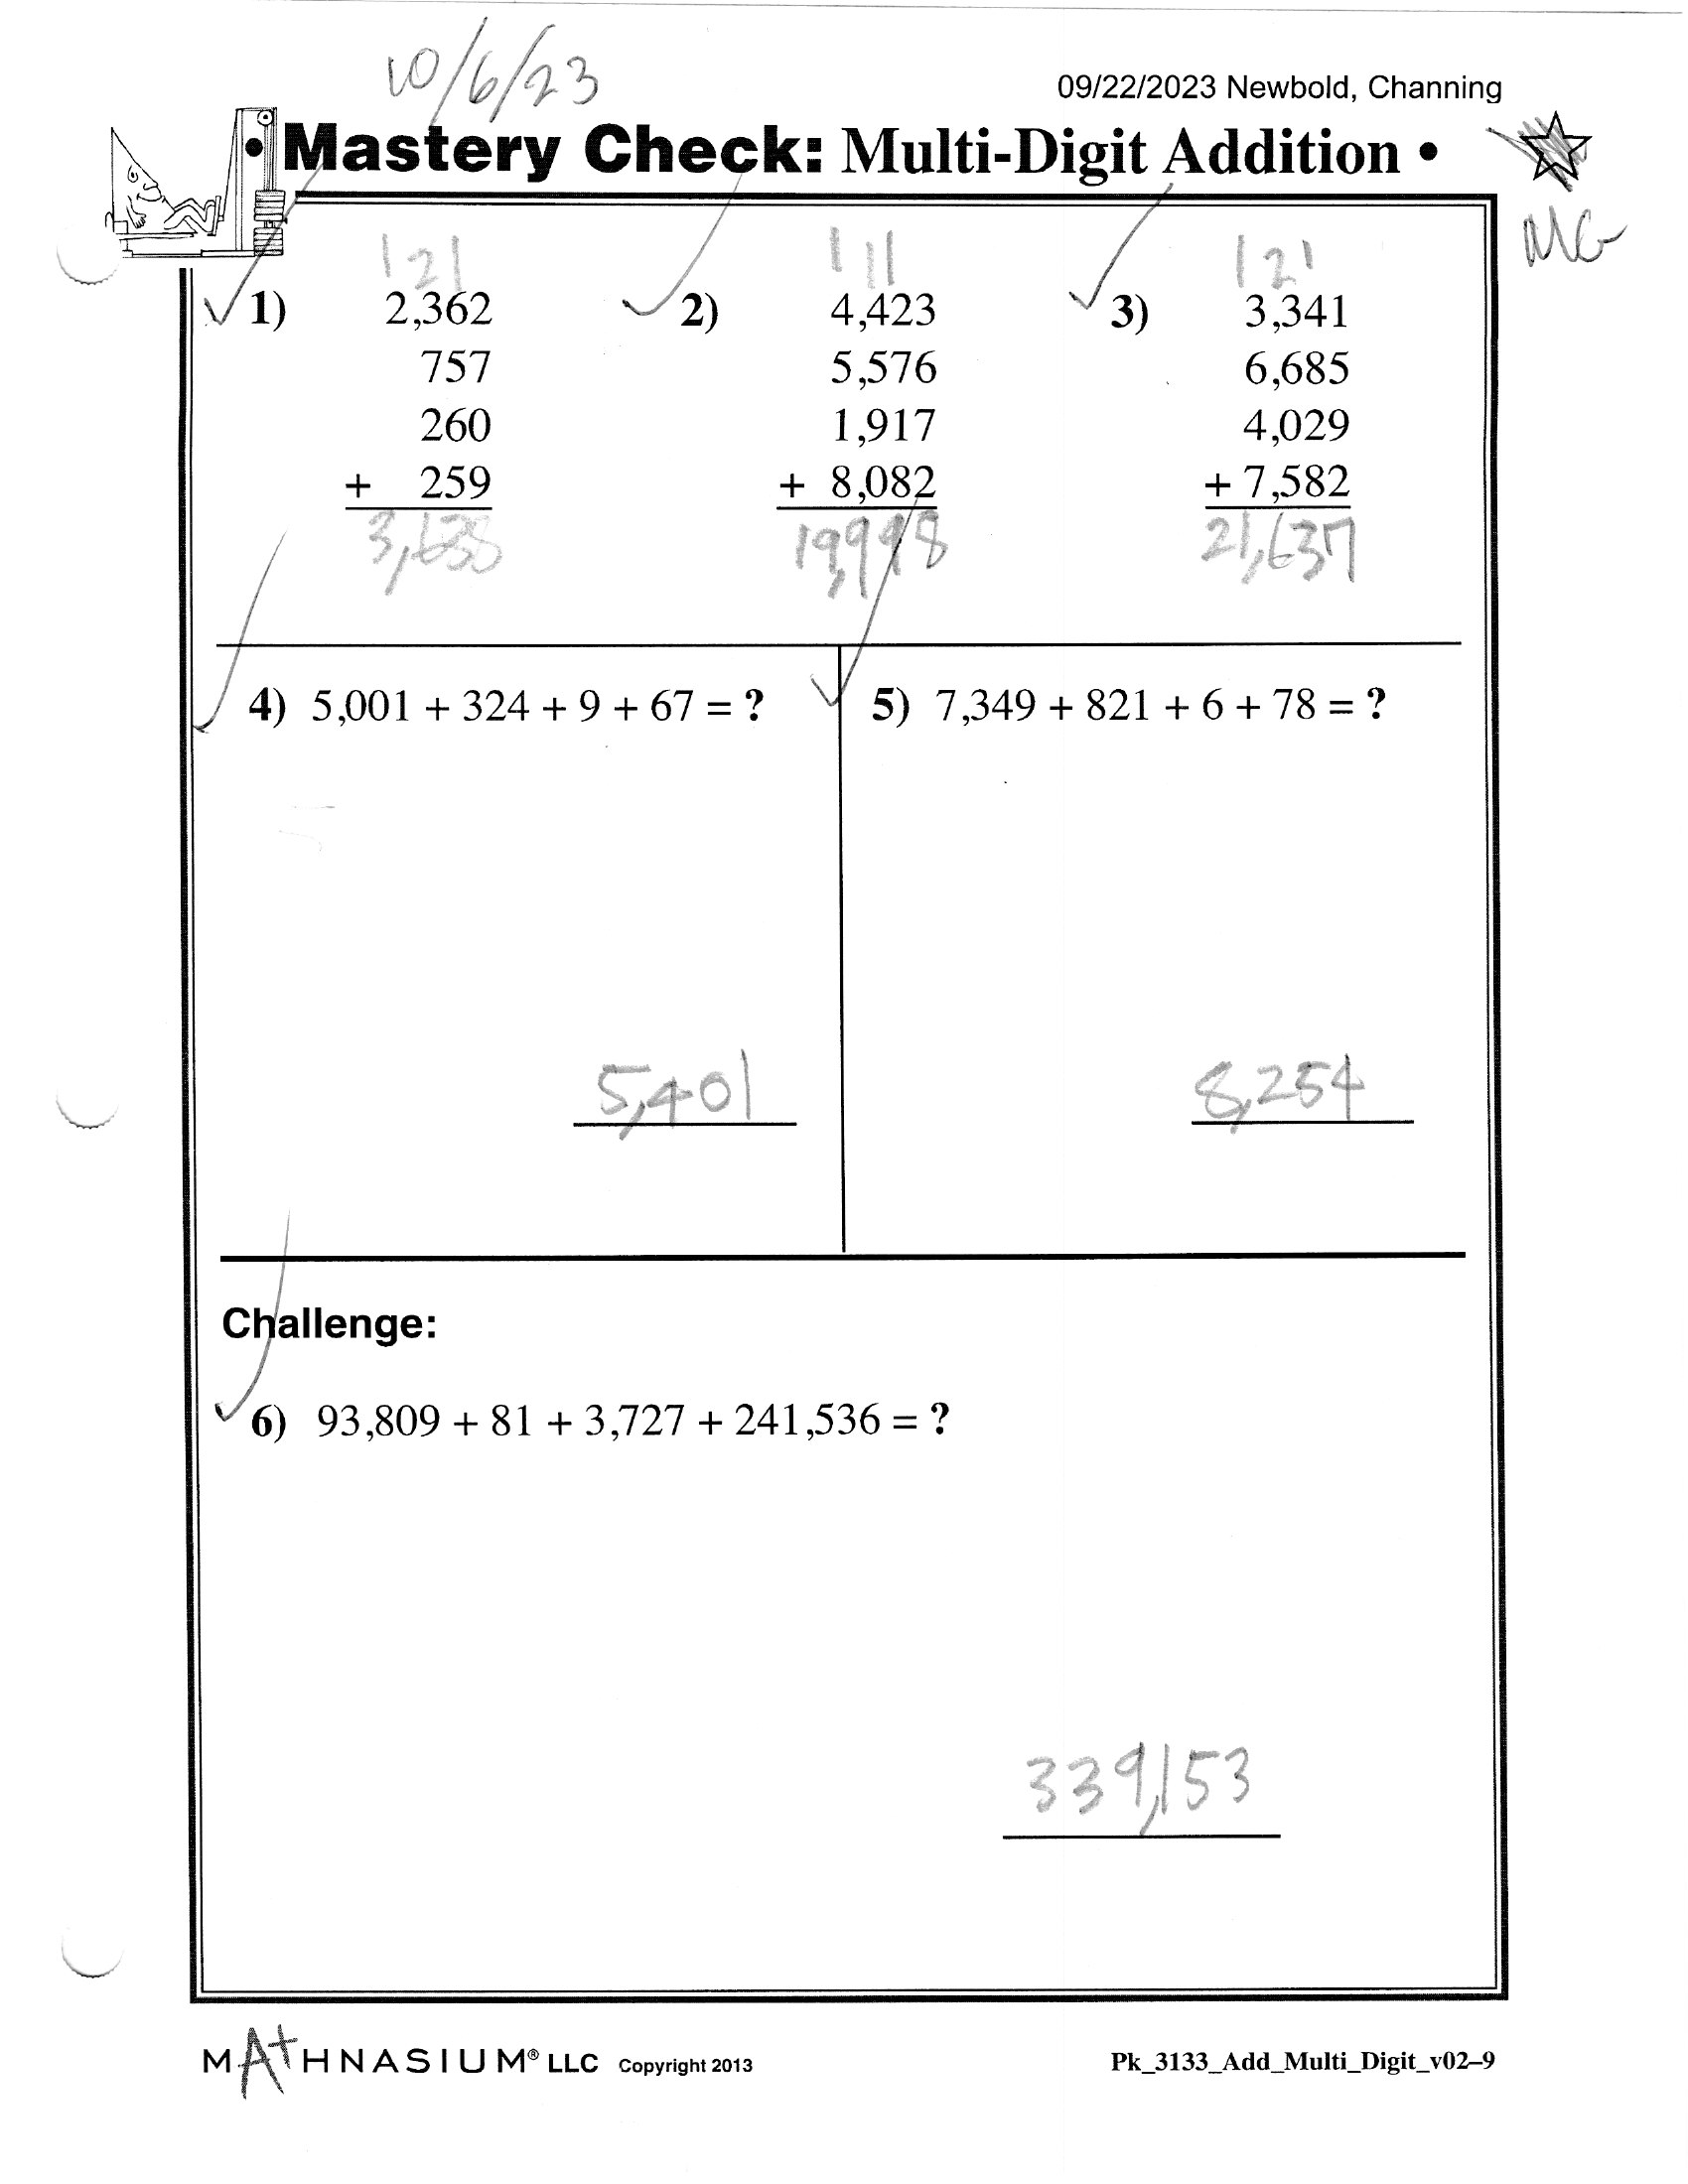 10/6/23
09/22/2023 Newbold, Channing
• Mastery Check: Multi-Digit Addition •
MG
1 2 1
1 1 1
1 2 1
1) 2,362
757
260
+ 259
3,638
2) 4,423
5,576
1,917
+ 8,082
19,998
3) 3,341
6,685
4,029
+ 7,582
21,637
4) 5,001 + 324 + 9 + 67 = ?
5,401
5) 7,349 + 821 + 6 + 78 = ?
8,254
Challenge:
6) 93,809 + 81 + 3,727 + 241,536 = ?
339,153
MATHNASIUM® LLC Copyright 2013
Pk_3133_Add_Multi_Digit_v02–9